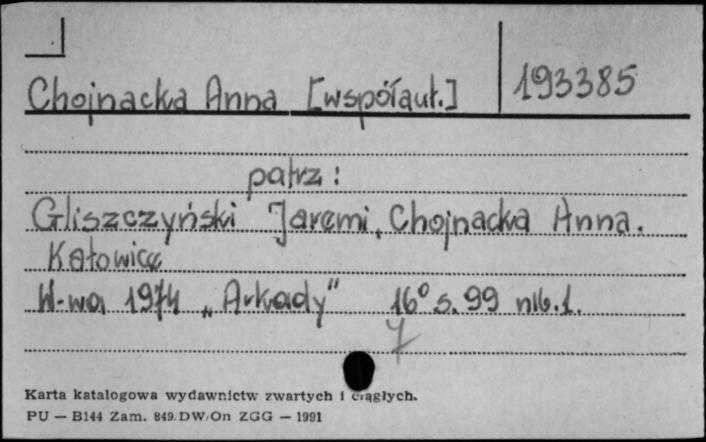 Chojnacka Anna [współaut.] 193385
patrz:
Gliszczyński Jaremi, Chojnacka Anna.
Katowice
W-wa 1974 „Arkady" 16° s. 99 nlb. 1.
Karta katalogowa wydawnictw zwartych i ciągłych.
PU — B144 Zam. 849/DW/On ZGG — 1991